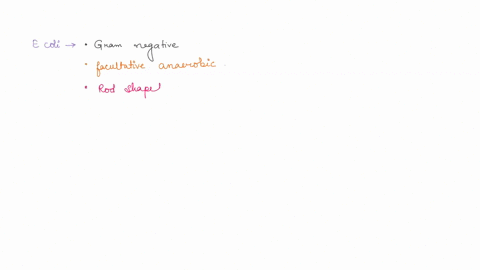 E coli → • Gram negative
• facultative anaerobic.
• Rod shape